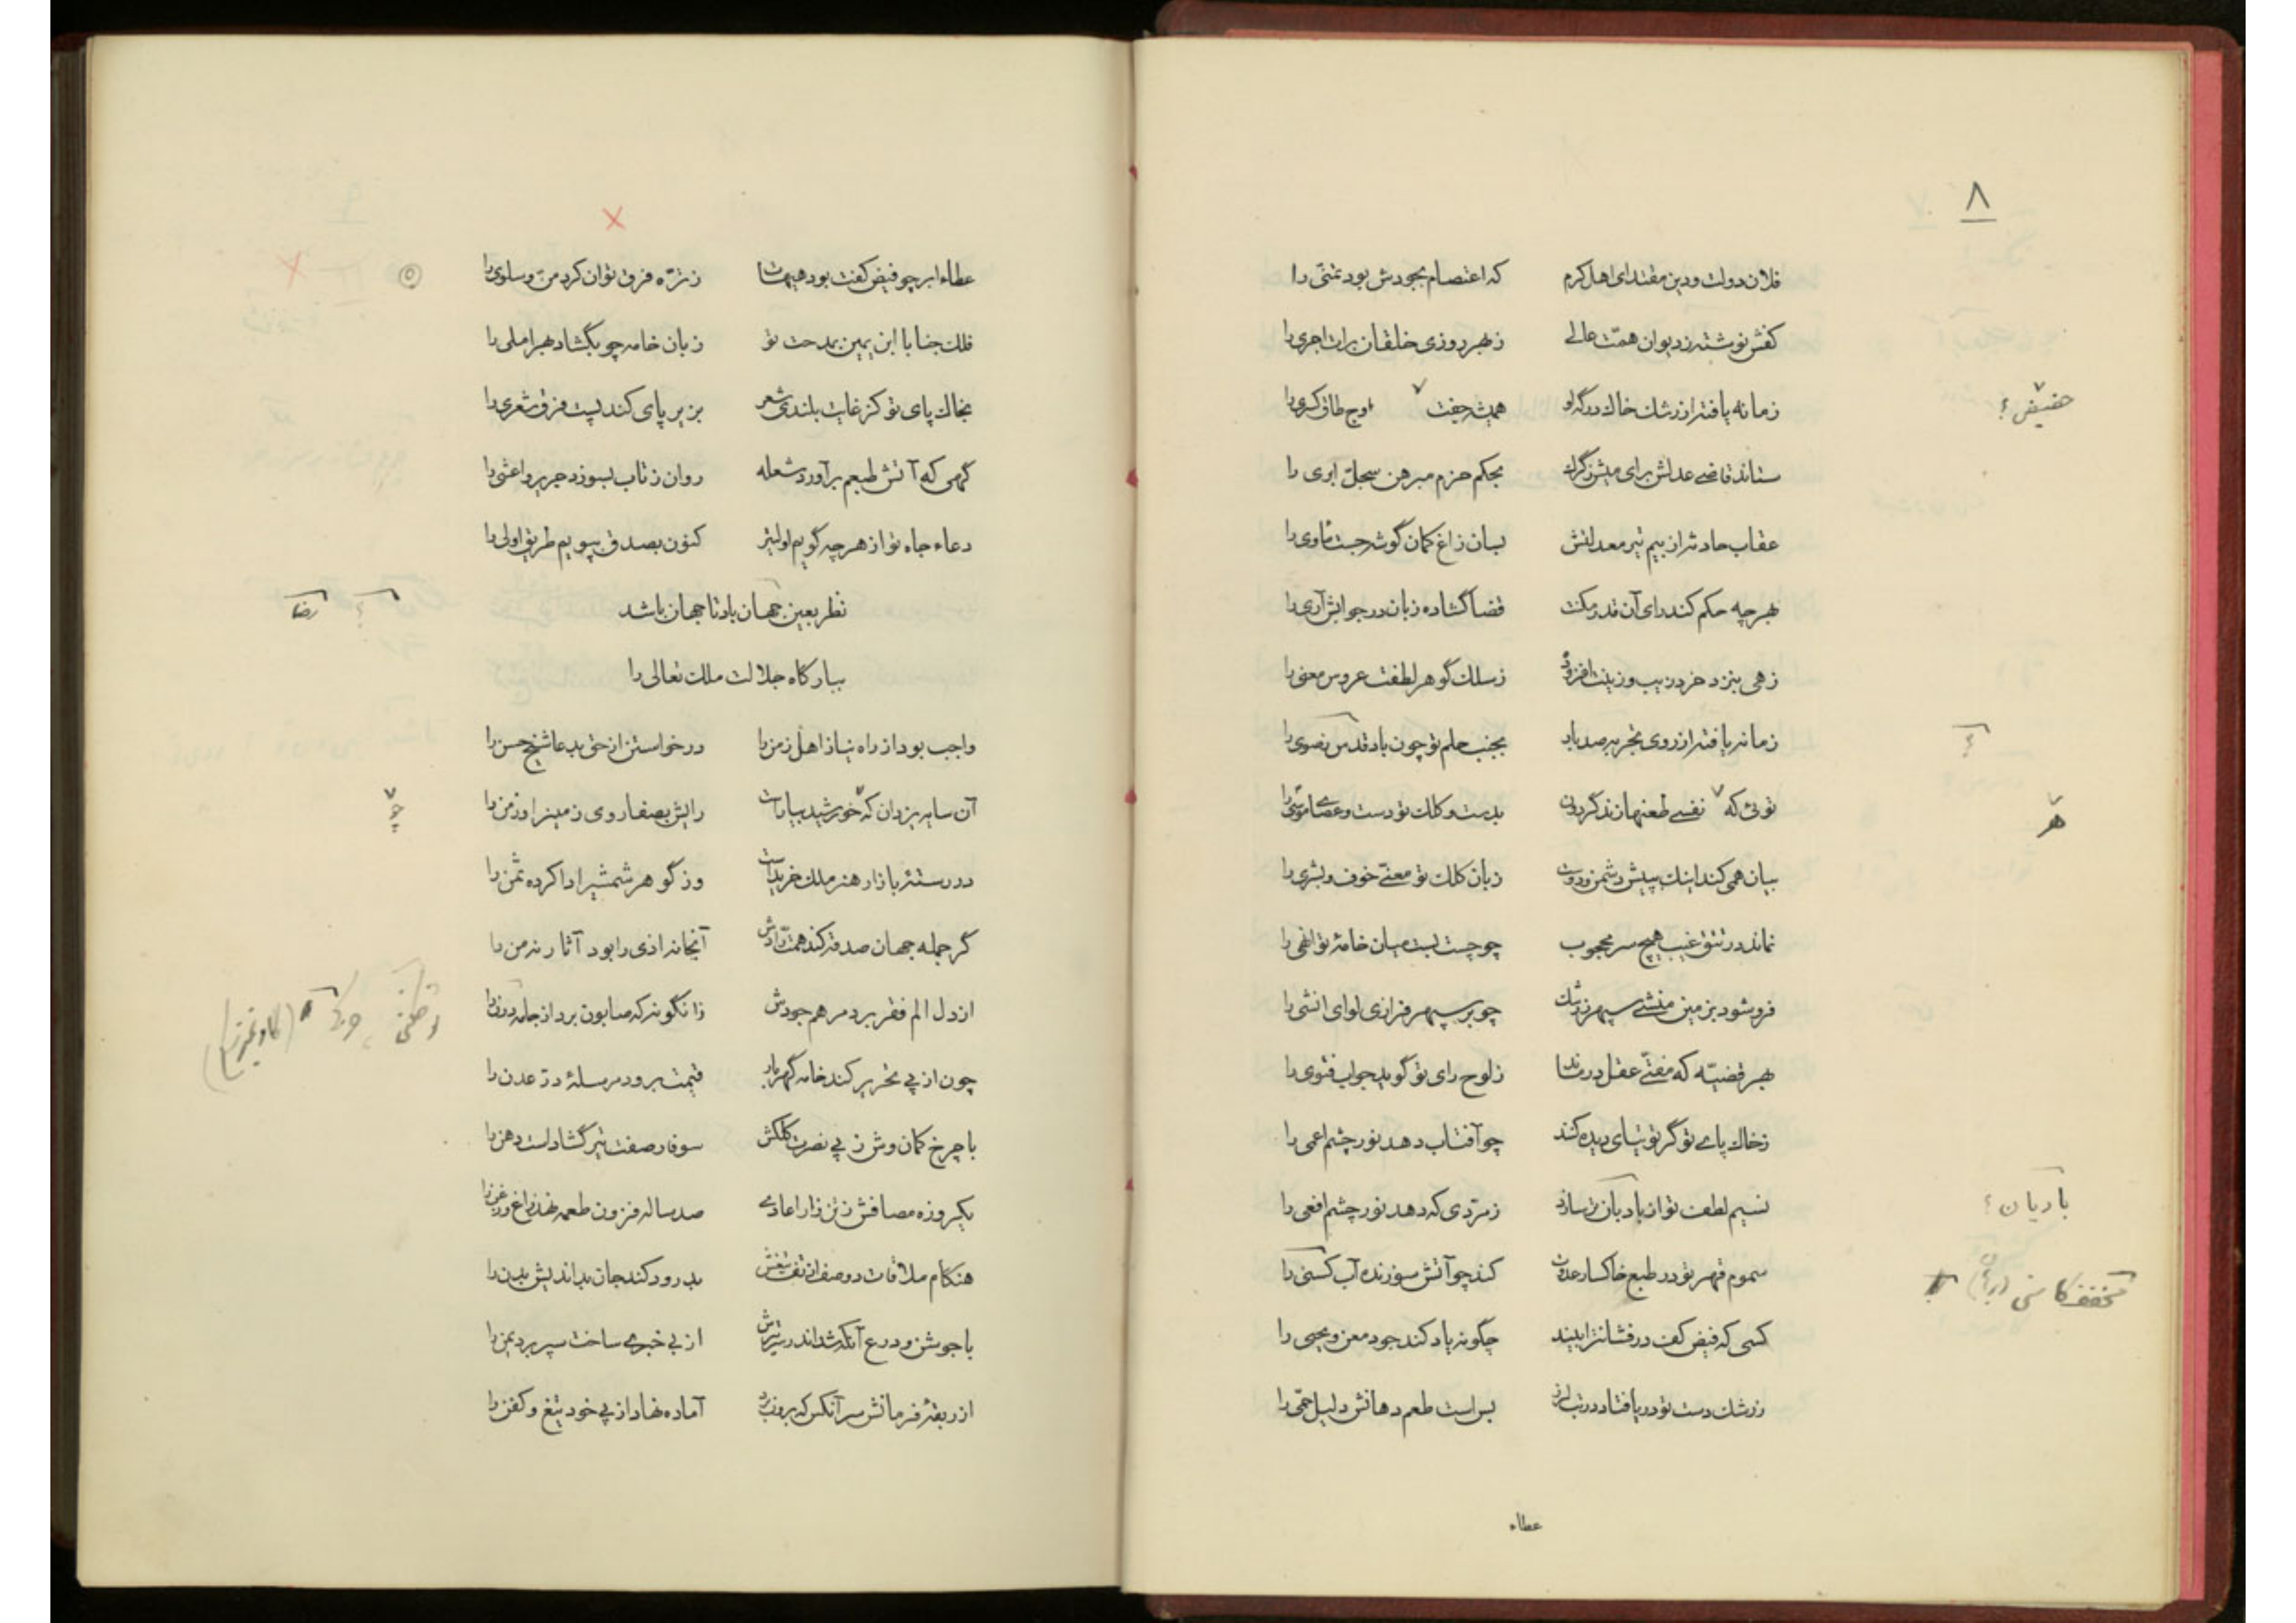 ٨
فلان دولت و دین مقتدای اهل کرم که اعتصام بجودش بود تمنّی را
کفش نوشته ز دیوان همّت عالی ز بهر روزی خلقان برات اجری را
زمانه یافته از رشک خاک درگه او همیشه جفت اوج طاق کسری را
حضیض؟
ستاند قاضی عدلش برای میش ز گرگ بحکم حزم مبرهن سجلّ ابری را
عقاب حادثه از بیم تیر معدلتش بسان زاغ کمان گوشه جست مأوی را
بهر چه حکم کند رای آن قدر مکنت قضا گشاده زبان در جوابش آری را
زهی بنزد خرد زیب و زینت افزوده ز سلک گوهر لطفت عروس معنی را
زمانه یافته از روی تجربه صد بار بجنب حلم تو چون باد قدس رضوی را
توئی که نفسی طعنها زند گردون بدست و کلک تو دست و عصای موسی را
هر
بیان همی کند اینک بپیش دشمن و دوست زبان کلک تو معنی خوف و بشری را
نماند در تتق غیب هیچ سر محجوب چو چست بست میان خامۀ تو انهی را
فرو شود بزمین منشی سپهر ز رشک چو بر سپهر فرازی لوای انشی را
بهر قضیّه که مفتی عقل درماند ز لوح رای تو گوید جواب فتوی را
ز خاک پای تو گر توتیای دیده کنند چو آفتاب دهد نور چشم اعمی را
نسیم لطف تو از بادبان سازد زمرّدی که دهد نور چشم افعی را
بادیان؟
سموم قهر تو در طبع خاکسار عدوت کند چو آتش سوزنده آب کسنی را
مخفف کاسنی
کسی که فیض کف درفشانت را بیند چگونه یاد کند جود معن و یحیی را
ز رشک دست تو دریا فتاده در تب لرز بس است طعم دهانش دلیل حمّی را
عطاء
عطاء ابر چو فیض کفت بود هیهات ز ترّه فرق توان کرد منّ و سلوی را
فلک جنابا ابن یمین بمدحت تو زبان خامه چو بگشاد بهر املی را
بخاک پای تو کز غایت بلندی شعر بزیر پای کند پست فرق شعری را
گهی که آتش طبعم برآورد شعله روان ز تاب بسوزد جریر و اعشی را
دعاء جاه تو از هر چه گویم اولیتر کنون بصدق بپویم طریق اولی را
نظر بعین جهان باد تا جهان باشد
رضا
ببارگاه جلالت ملک تعالی را
واجب بود از راه نیاز اهل زمن را درخواستن از حق بدعا شیخ حسن را
آن سایه یزدان که خورشید بیاراست رایش بصفا روی زمین را و زمن را
چو
در رستۀ بازار هنر ملک خریدست وز گوهر شمشیر ادا کرده ثمن را
گر جمله جهان صدقه کند همت رادش آنجا نه اذی را بود آثار نه من را
از دل الم فقر برد مرهم جودش زانگونه که صابون برد از جامه درن را
چون از پی تحریر کند خامه گهربار قیمت برود مرسلۀ درّ عدن را
با چرخ کمان وش ز پی نصرت کلکش سوفار صفت تیر گشادست دهن را
یکروزه مصافش ز تن زار اعادی صد ساله فزون طعمه نهد زاغ و زغن را
هنگام ملاقات دو صف از تف تیغش بدرود کند جان بداندیش بدن را
با جوشن و درع آنکه شد اندر ره تیرش از بی خبری ساخت سپر برد یمن را
از ربقۀ فرمانش سر آنکس که برون برد آماده نهاد از پی خود تیغ و کفن را